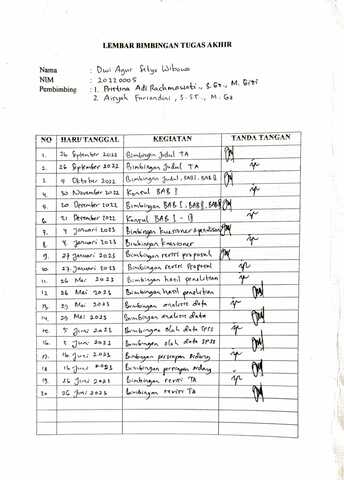 LEMBAR BIMBINGAN TUGAS AKHIR
Nama : Dwi Agur Setyo Wibowo
NIM : 20120005
Pembimbing : 1. Pristina Adi Rachmawati, S.Gz., M. Gizi
2. Aisyah Fariandini, S.ST., M. Gz
NO HARI/TANGGAL KEGIATAN TANDA TANGAN
1. 26 September 2022 Bimbingan Judul TA
2. 26 September 2022 Bimbingan Judul TA
3. 4 Oktober 2022 Bimbingan Judul, BAB I, BAB II
4. 30 November 2022 Konsul BAB I
5. 20 Desember 2022 Bimbingan BAB I, BAB II, BAB
6. 21 Desember 2022 Konsul BAB I -
7. 4 Januari 2023 Bimbingan kuesioner
8. 4 Januari 2023 Bimbingan kuesioner
9. 27 Januari 2023 Bimbingan revisi proposal
10. 27 Januari 2023 Bimbingan revisi proposal
11. 26 Mei 2023 Bimbingan hasil penelitian
12. 26 Mei 2023 Bimbingan hasil penelitian
13. 29 Mei 2023 Bimbingan analisis data
14. 29 Mei 2023 Bimbingan analisis data
15. 5 Juni 2023 Bimbingan olah data SPSS
16. 5 Juni 2023 Bimbingan olah data SPSS
17. 16 Juni 2023 Bimbingan persiapan sidang
18. 16 Juni 2023 Bimbingan persiapan sidang
19. 26 Juni 2023 Bimbingan revisi TA
20. 26 Juni 2023 Bimbingan revisi TA